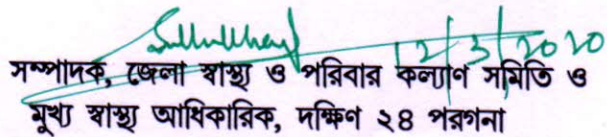 12/3/2020
সম্পাদক, জেলা স্বাস্থ্য ও পরিবার কল্যাণ সমিতি ও
মুখ্য স্বাস্থ্য আধিকারিক, দক্ষিণ ২৪ পরগনা